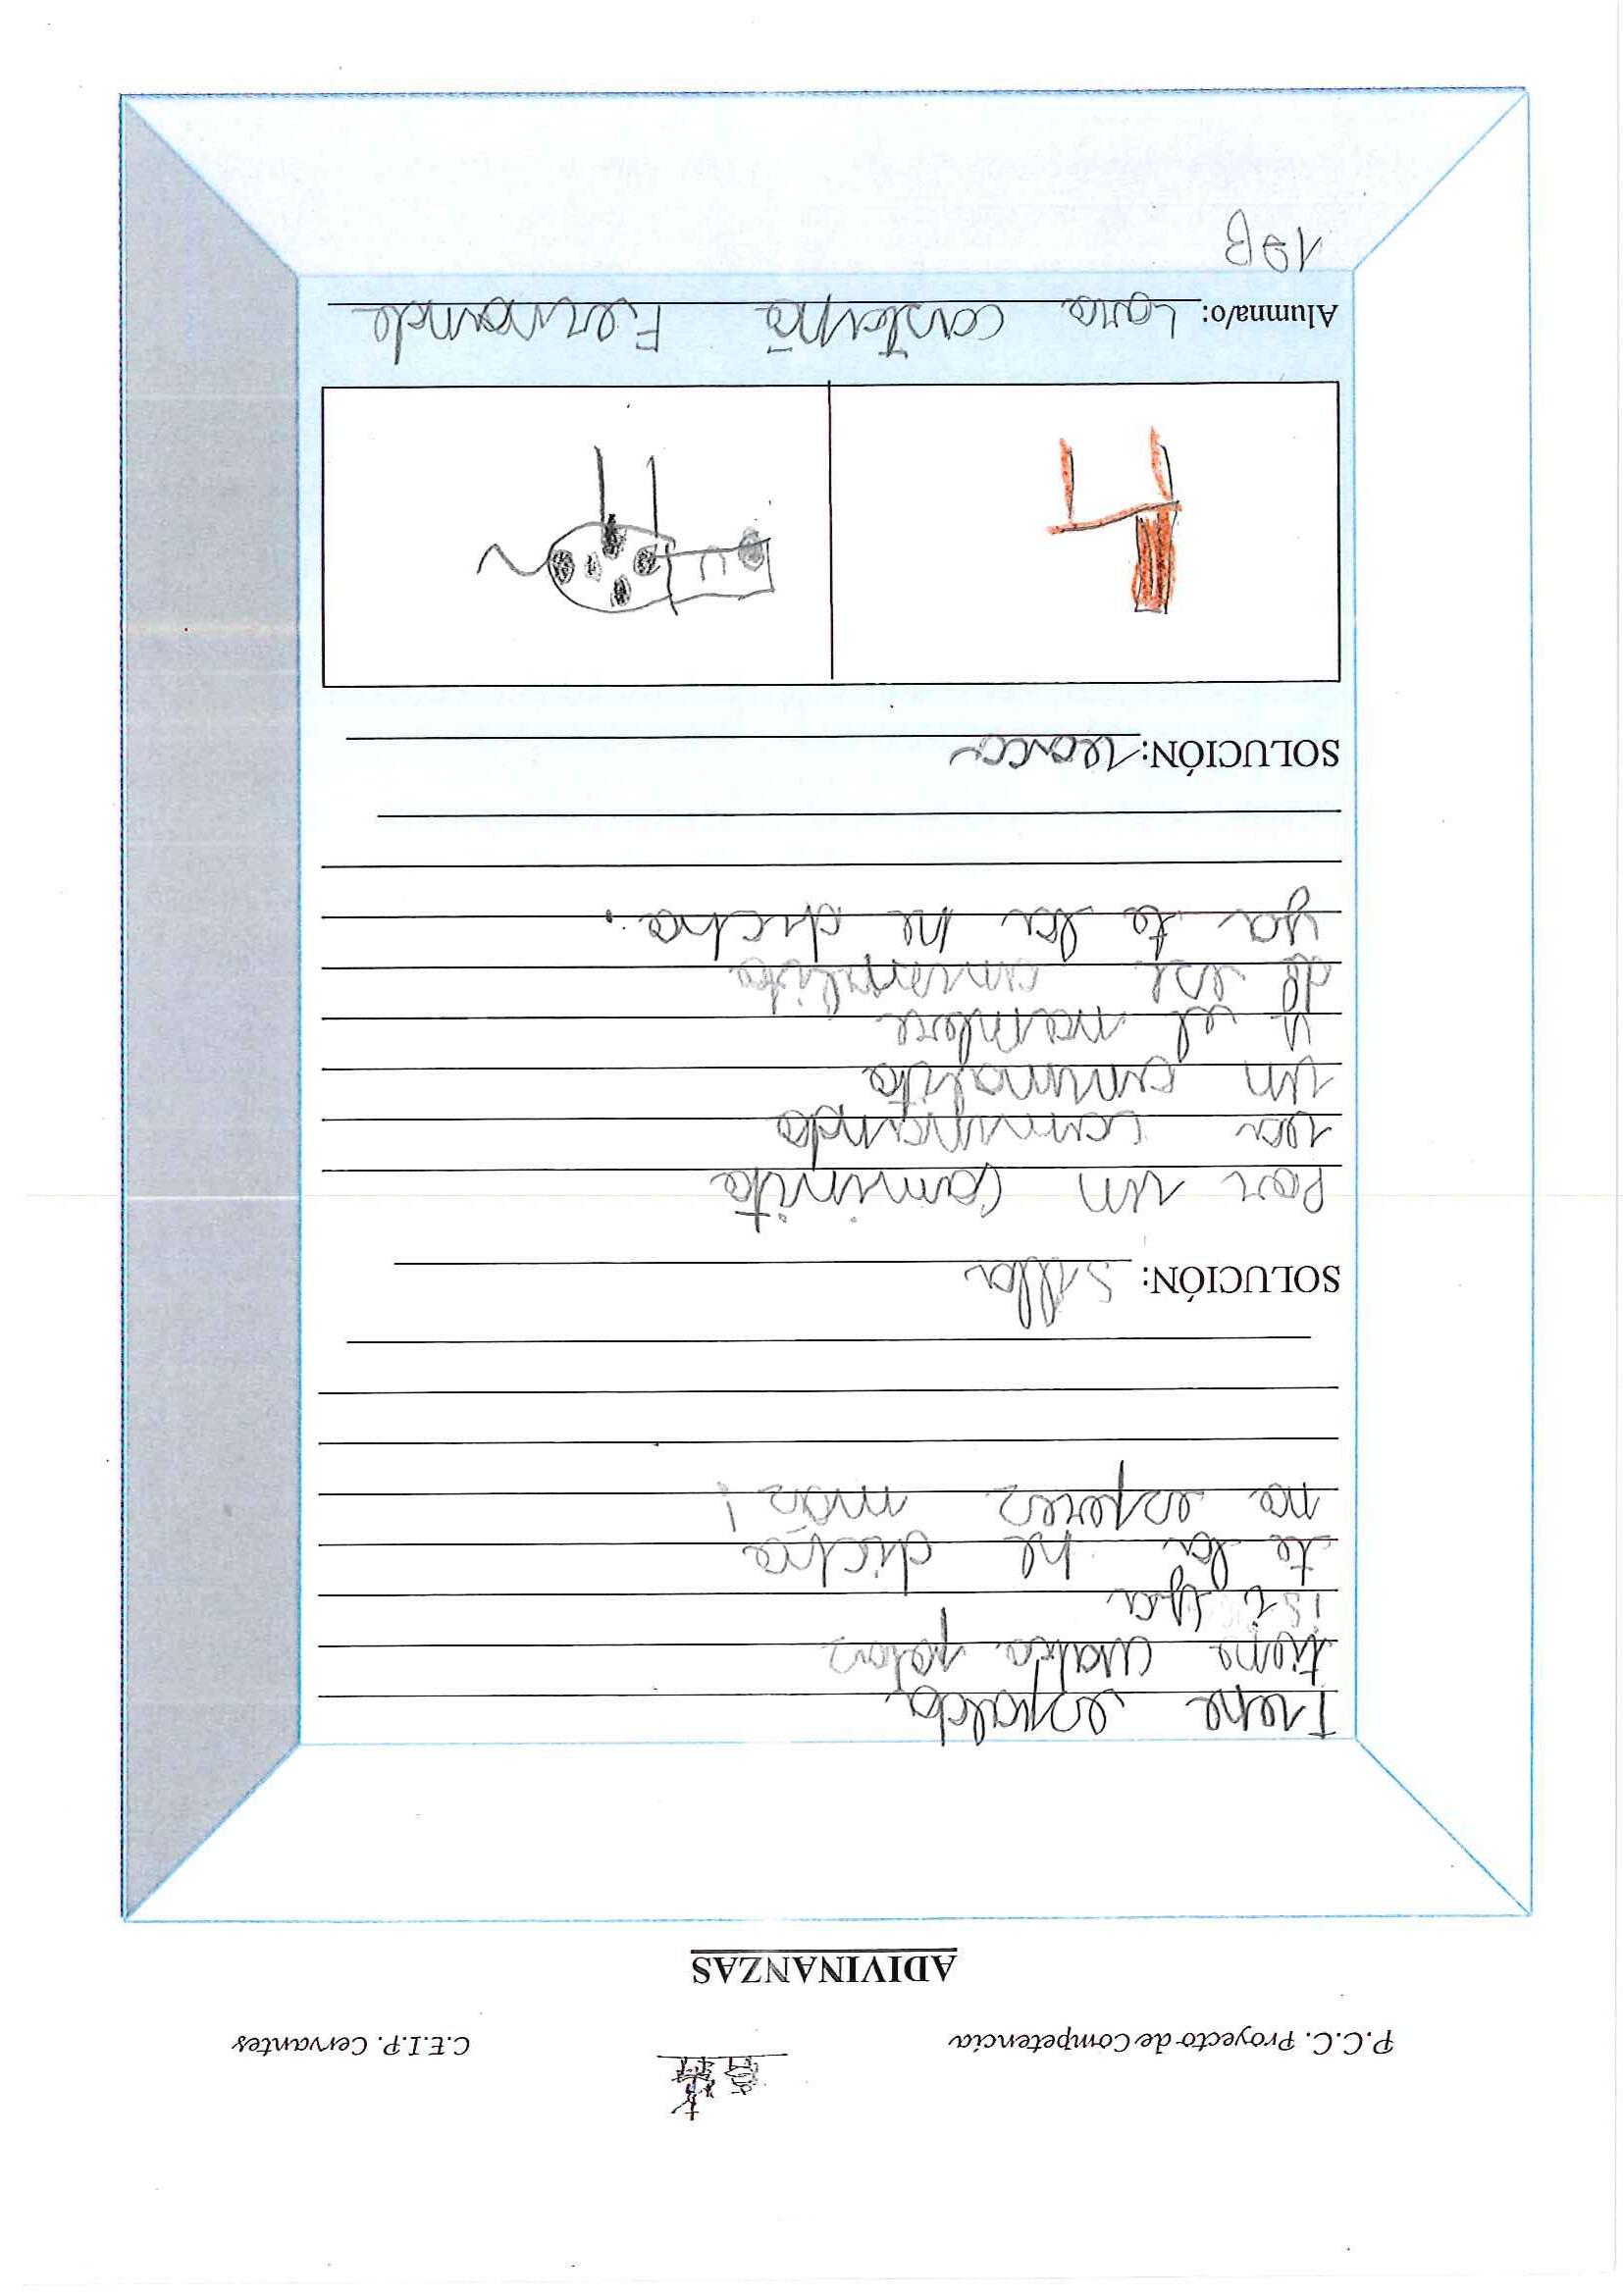 P.C.C. Proyecto de Competencia
C.E.I.P. Cervantes
ADIVINANZAS
Tiene espalda
tiene cuatro patas
te la he dicho
no esperes más!
SOLUCIÓN: Silla
Por un caminito
va caminando
un animalito
y el nombre
de ese animalito
ya te la he dicho.
SOLUCIÓN: vaca
Alumna/o: Lara castaño Fernande
1ºB